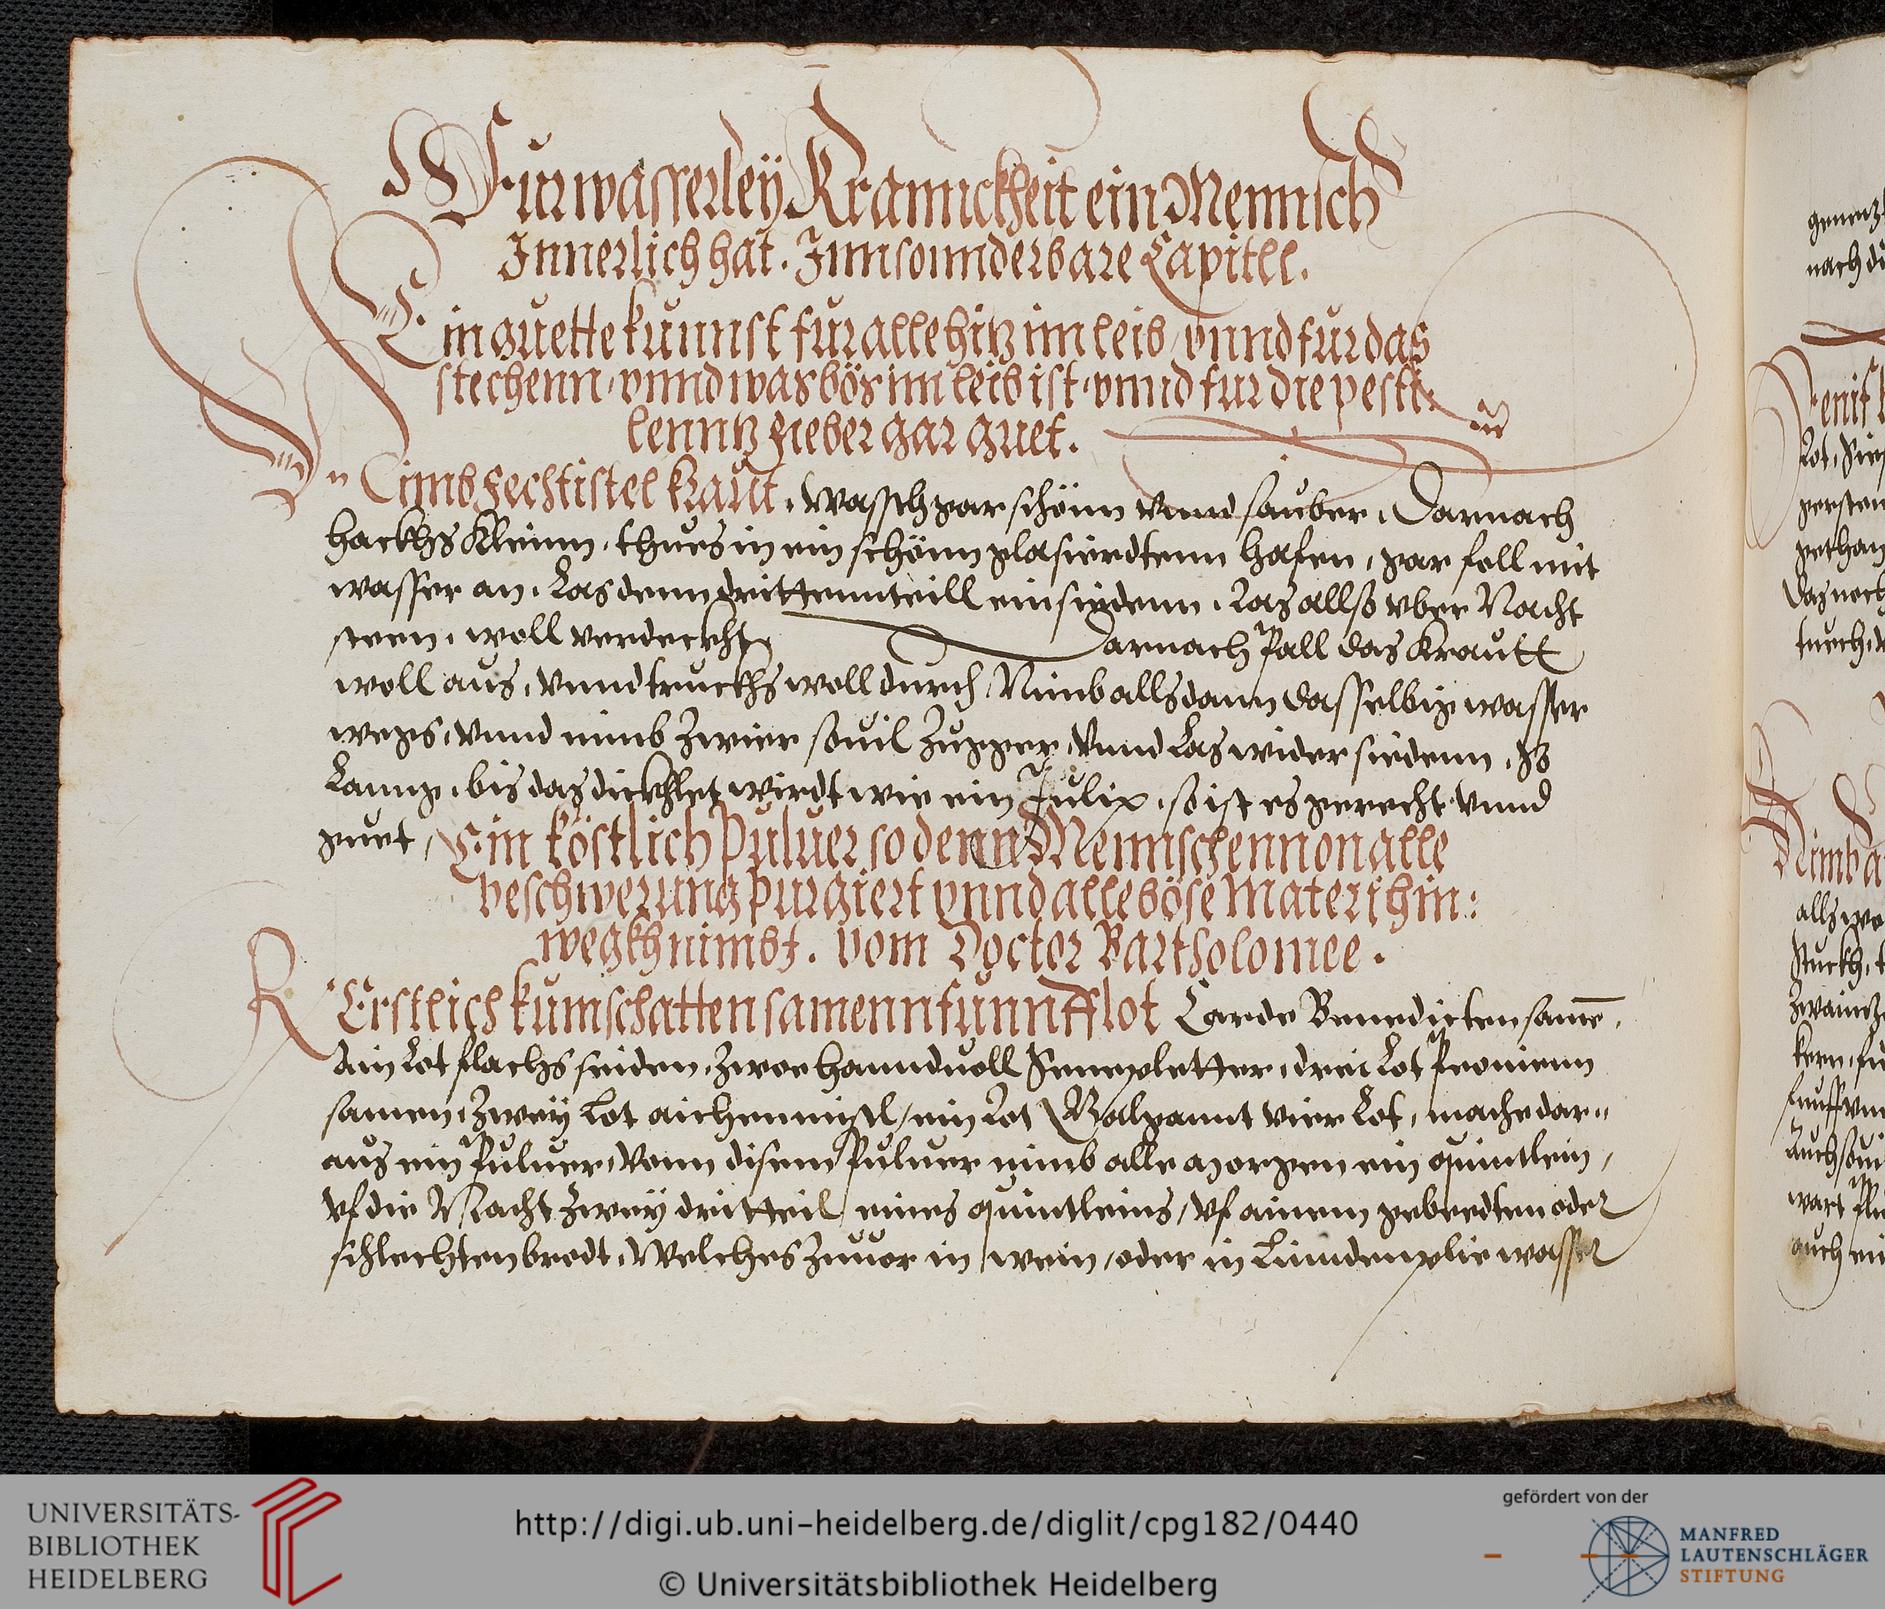 Fur wasserleÿ Krannckheit ein Mennsch
Innerlich hat. Inn sounderbare Capitel.
Ein guette kunnst fur alle hitz im leib vnnd fur das
stechenn, vnnd was bös im leib ist, vnnd fur die pesti:
lenntz fieber gar guet.
Nimb kraut, wasch gar schönn vnnd sauber, Darnach
hackhs kleinn, thues in ein schönn glasierdtenn hafen, gar foll mit
wasser an, Las denn drittenn teill einsiedenn, Las allso vber Nacht
steen, woll verdeckht, Darnach Pall das Krautt
woll aus, vnnd truckhs woll durch, Nimb allsdann dasselbig wasser
wegs, vnnd nimb zwier souil zugger, vnnd Las wider siedenn, so
Lanng, bis das dickhlet wirdt wie ein Julip, so ist es gerecht vnnd
guet, Ein köstlich Puluer so denn Mennschenn von alle
beschwerung purgiert vnnd alle böse Materi hin:
wegkh nimbt. Vom Doctor Bartholomee.
R Erstlich samenn funnff lot Carde Benedicten samē,
Ain Lot flachs seiden, Zwoe hannduoll Senepletter, drei Lot Peonienn
samen, Zwey Lot aichenmistl, ein Lot Galgannt vier Lot, mache dar=
aus ein Puluer, Vonn disem Puluer nimb alle Morgen ein quintlein,
Vf die Nacht zwey dritteil eines quintleins, Vf ainem gebeedten oder
schlechten brodt, Welches zuuor in wein, oder in Linndenplie wasser
UNIVERSITÄTS-
BIBLIOTHEK
HEIDELBERG
http://digi.ub.uni-heidelberg.de/diglit/cpg182/0440
© Universitätsbibliothek Heidelberg
gefördert von der
MANFRED
LAUTENSCHLÄGER
STIFTUNG